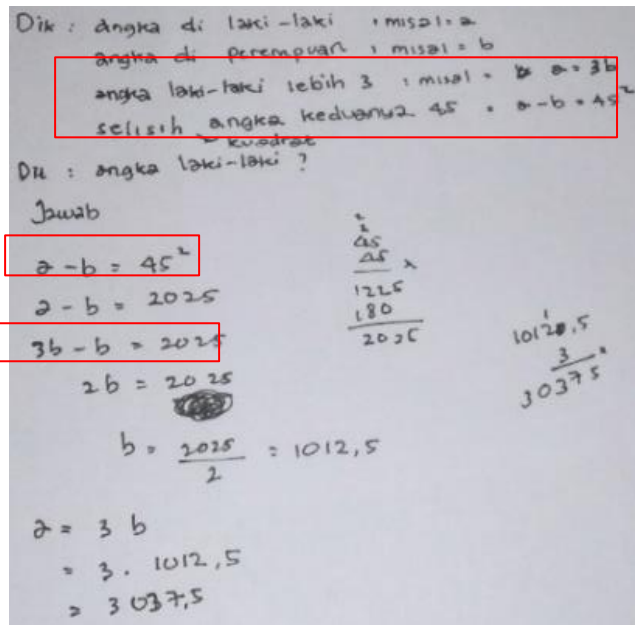 Dik : angka di laki-laki : misal = a
angka di perempuan : misal = b
angka laki-laki lebih 3 : misal = a = 3b
selisih angka keduanya 45 = a - b = 45²
kuadrat
Dit : angka laki-laki ?
Jawab
a - b = 45²
a - b = 2025
3b - b = 2025
2b = 2025
b = 2025/2 = 1012,5
a = 3 b
= 3 . 1012,5
= 3037,5
2
2
45
45 ×
1225
180
2025
1
1012,5
3 ×
30375